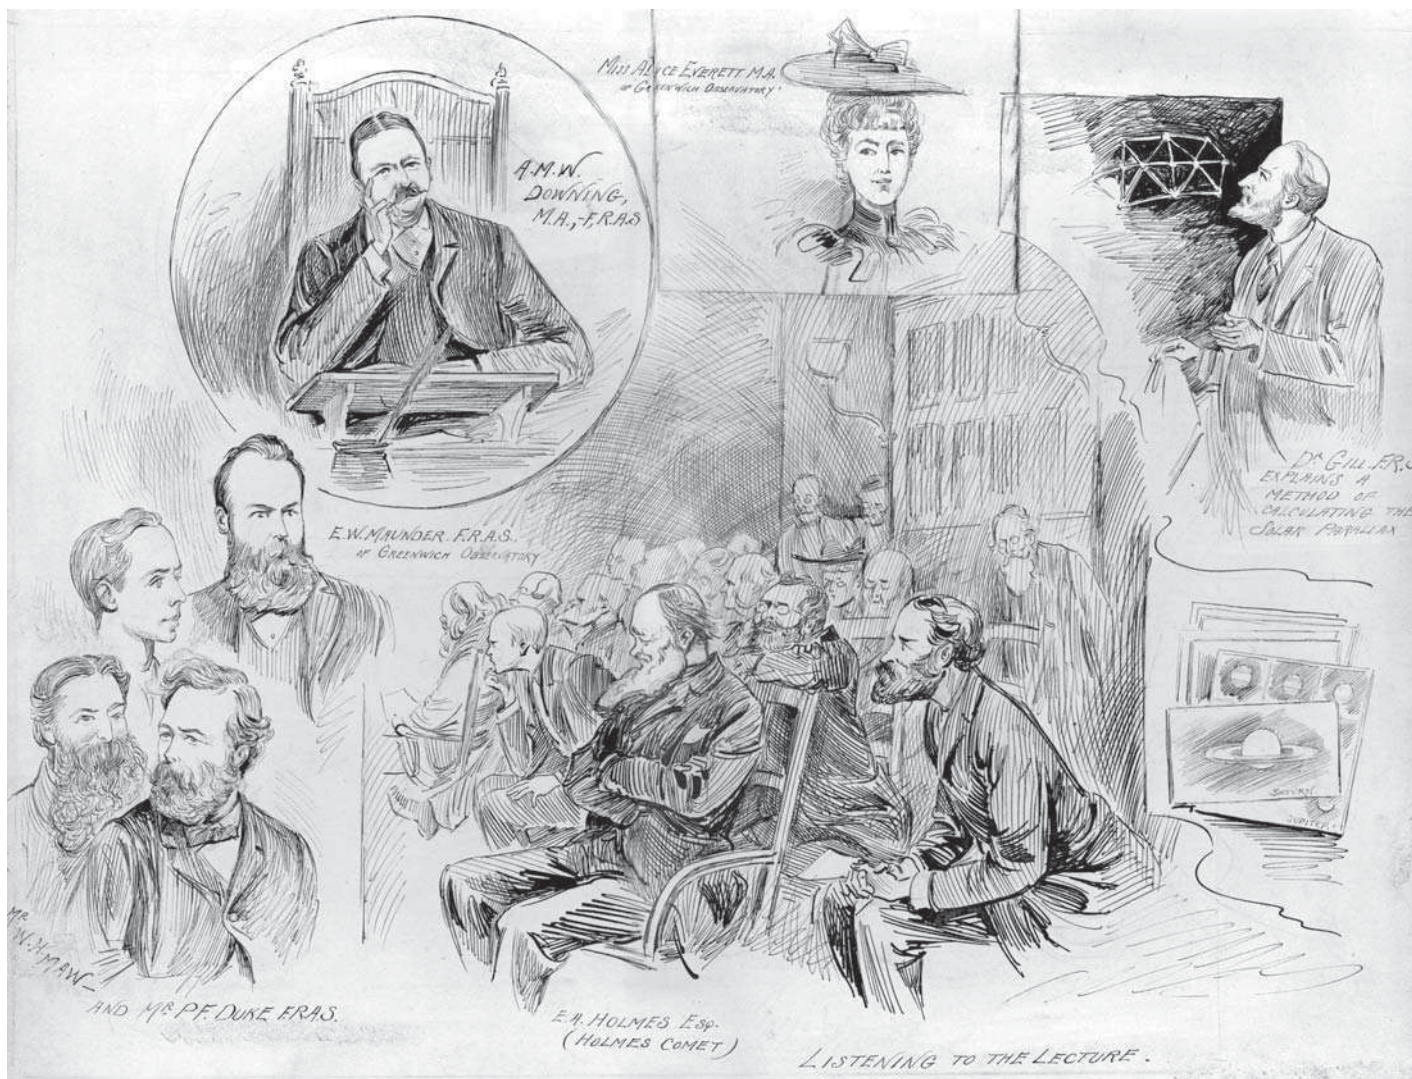 A.M.W.
DOWNING,
M.A., F.R.A.S
MISS ALICE EVERETT M.A.
OF GREENWICH OBSERVATORY.
DR GILL. F.R.S
EXPLAINS A
METHOD OF
CALCULATING THE
SOLAR PARALLAX
E.W. MAUNDER. F.R.A.S.
OF GREENWICH OBSERVATORY
SATURN
JUPITER
MR
W.H.
MAW
AND MR P.F. DUKE F.R.A.S.
E.H. HOLMES ESQ.
(HOLMES COMET)
LISTENING TO THE LECTURE.